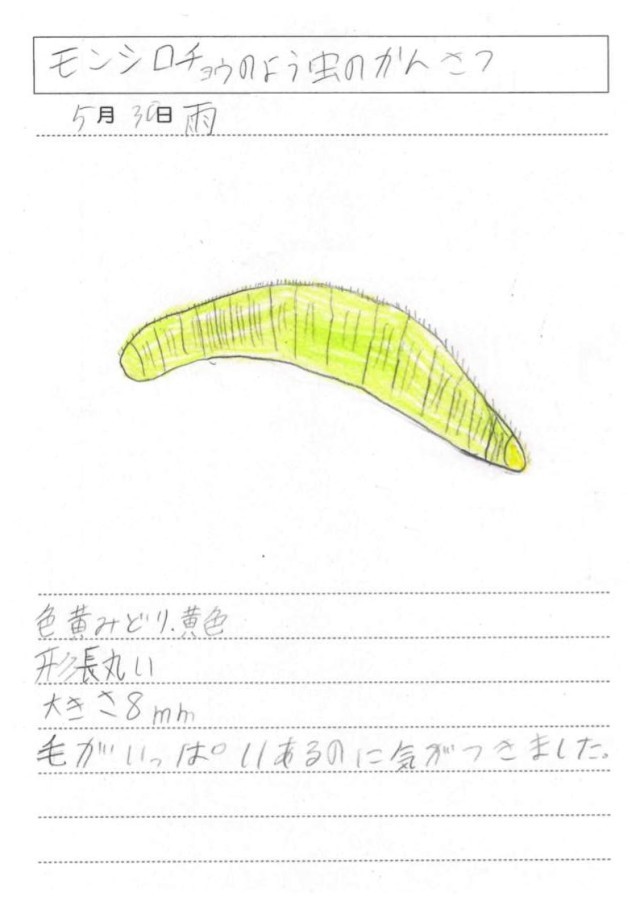 モンシロチョウのよう虫のかんさつ
5月30日 雨
色黄みどり.黄色
形長丸い
大きさ8mm
毛がいっぱいあるのに気がつきました。